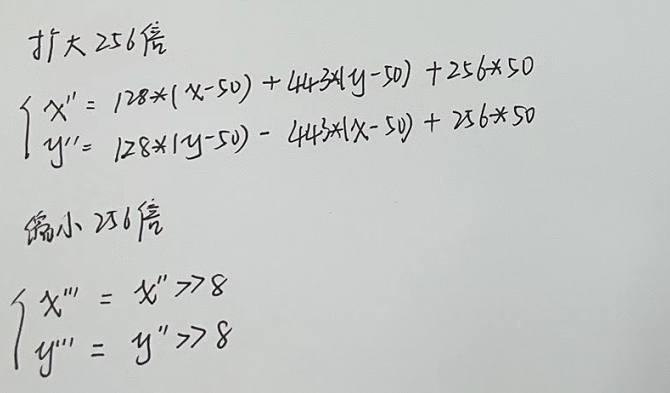 扩大256倍
x'' = 128*(x-50) + 443*(y-50) + 256*50
y'' = 128*(y-50) - 443*(x-50) + 256*50
缩小256倍
x''' = x'' >> 8
y''' = y'' >> 8